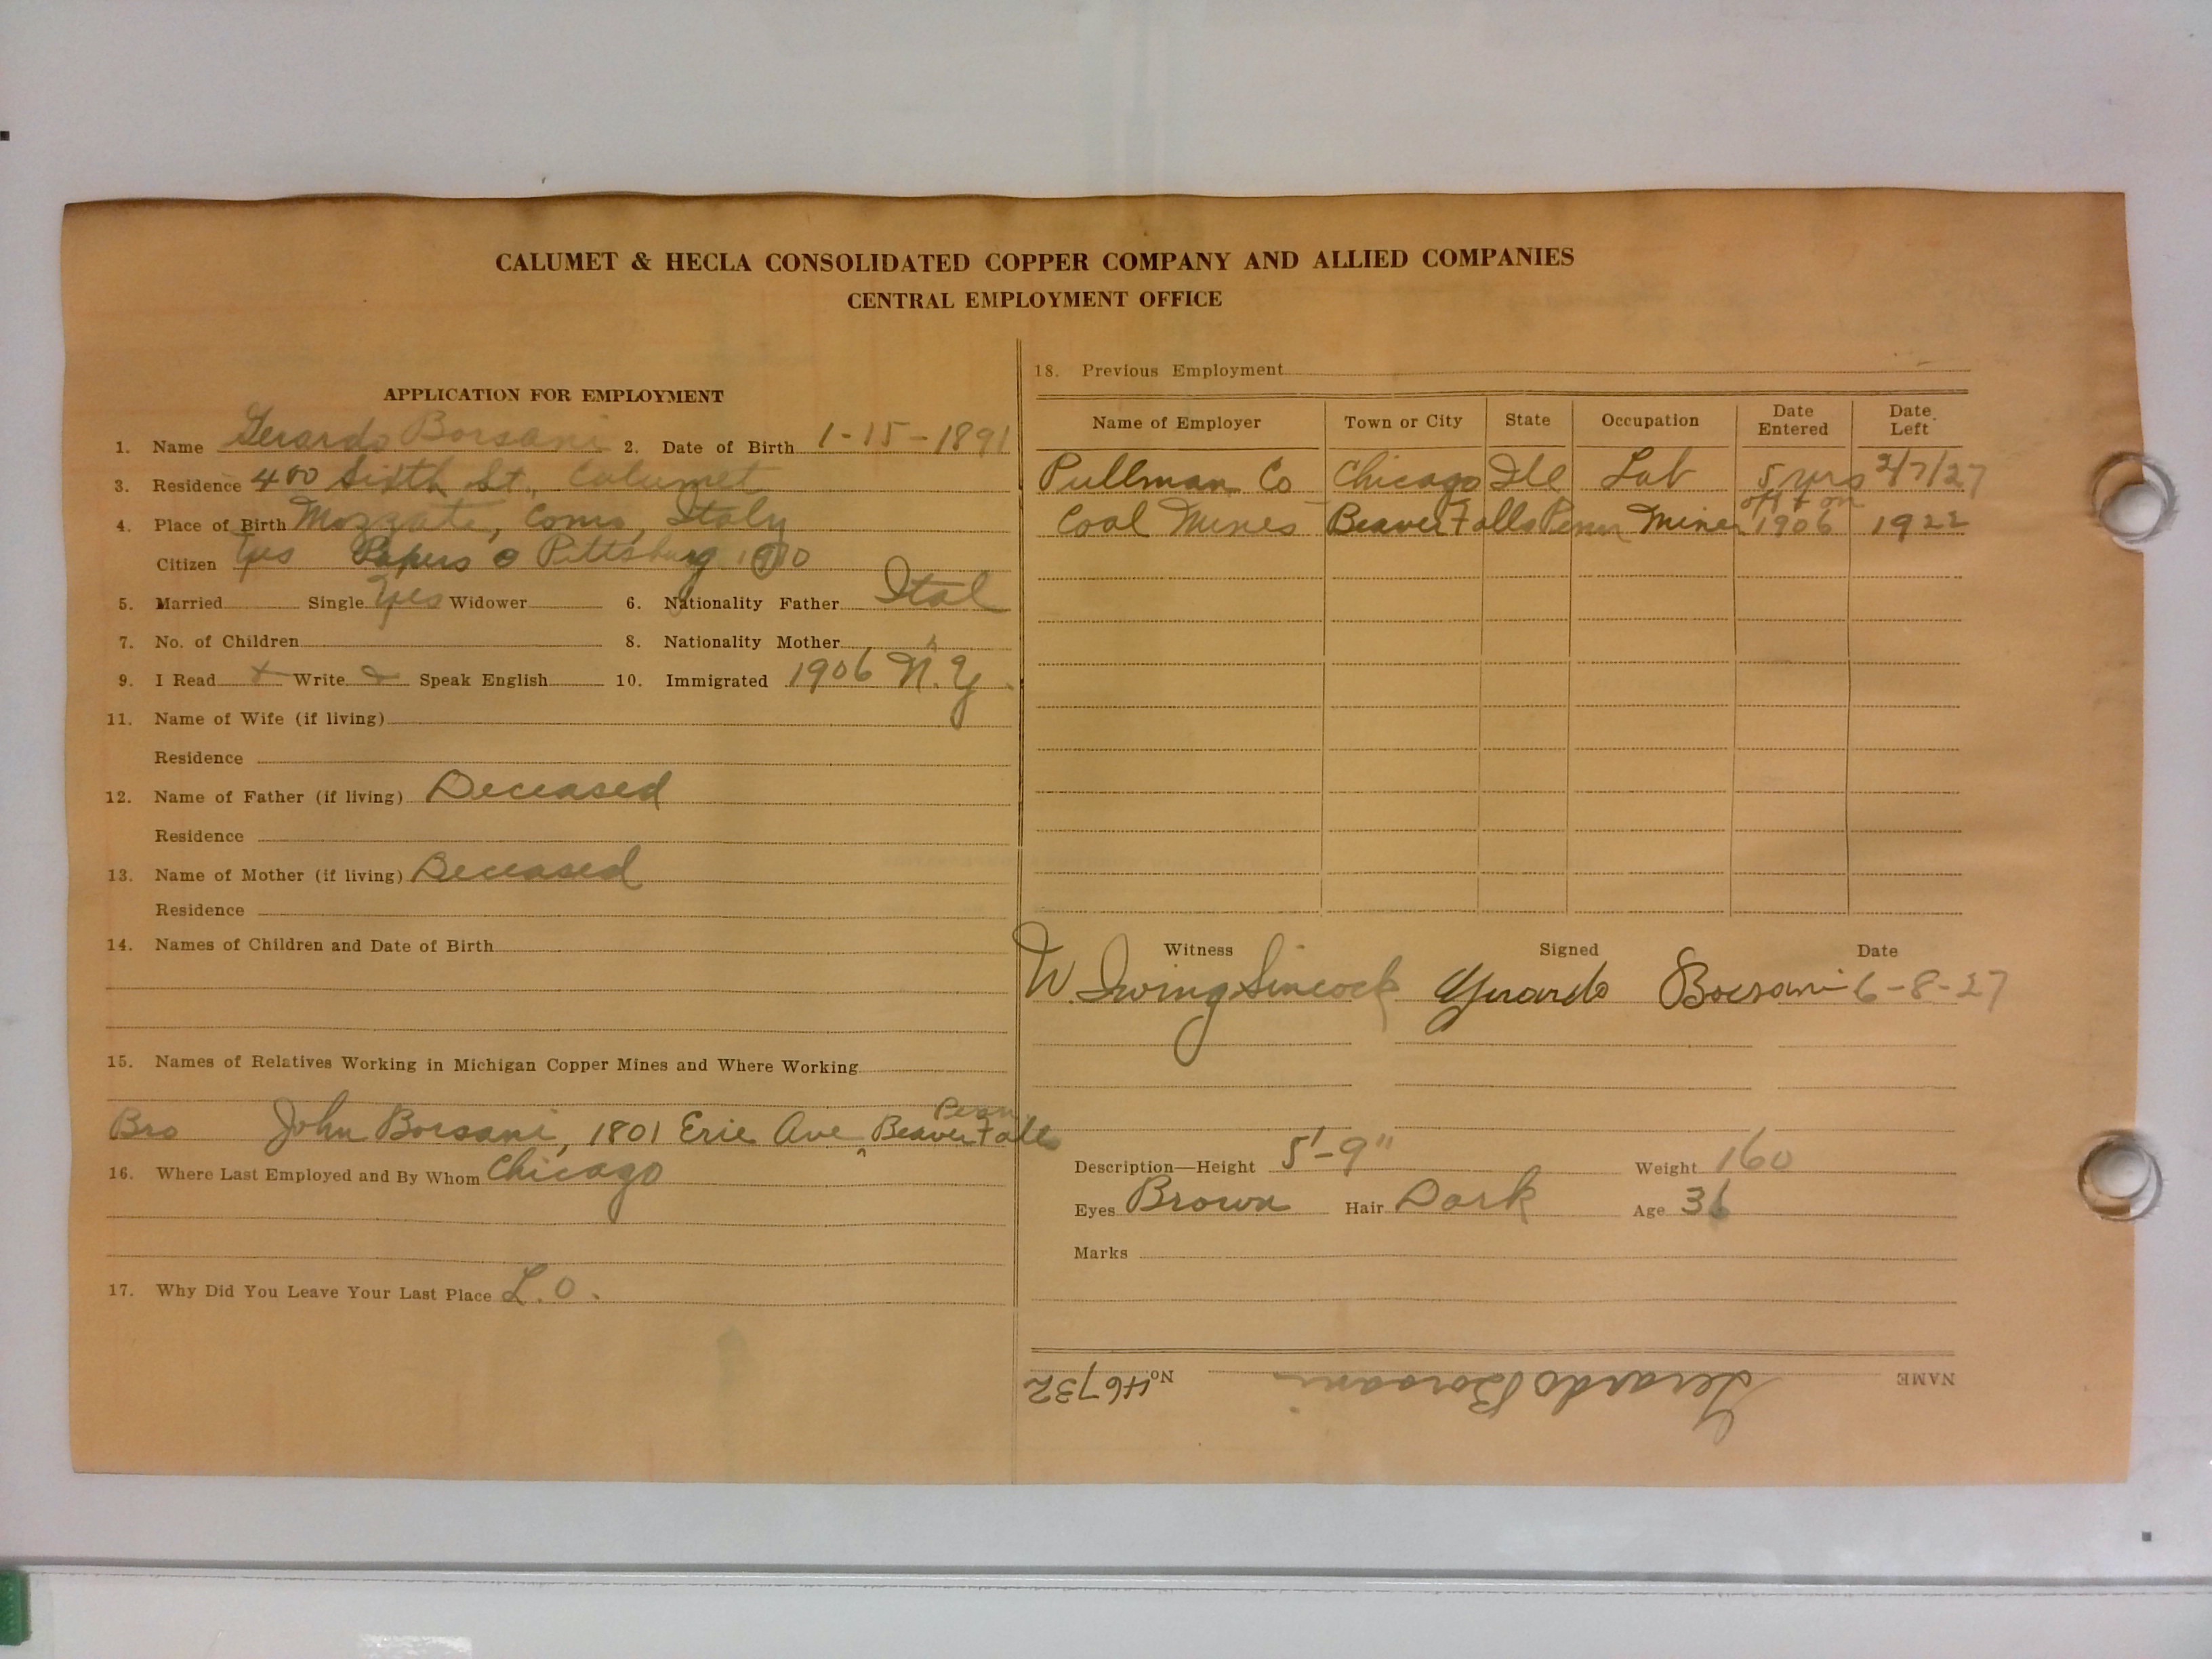 CALUMET & HECLA CONSOLIDATED COPPER COMPANY AND ALLIED COMPANIES
CENTRAL EMPLOYMENT OFFICE
APPLICATION FOR EMPLOYMENT
1. Name Gerardo Borsani 2. Date of Birth 1-15-1891
3. Residence 400 Sixth St., Calumet
4. Place of Birth Mozzate, Como, Italy
Citizen Yes Papers Pittsburg
5. Married Single Yes Widower 6. Nationality Father Ital
7. No. of Children 8. Nationality Mother "
9. I Read Write Speak English 10. Immigrated 1906 N.Y.
11. Name of Wife (if living)
Residence
12. Name of Father (if living) Deceased
Residence
13. Name of Mother (if living) Deceased
Residence
14. Names of Children and Date of Birth
15. Names of Relatives Working in Michigan Copper Mines and Where Working
Penn
Bro John Borsani, 1801 Erie Ave ^ Beaver Falls
16. Where Last Employed and By Whom Chicago
17. Why Did You Leave Your Last Place L.O.
18. Previous Employment
Name of Employer Town or City State Occupation Date Entered Date Left
Pullman Co Chicago Ill Lab 5 yrs 2/7/27
off + on
Coal Mines Beaver Falls Penn Miner 1906 1922
Witness Signed Date
W. Irving Sincock Gerardo Borsani 6-8-27
Description—Height 5'-9" Weight 160
Eyes Brown Hair Dark Age 36
Marks
NAME Gerardo Borsani No. 46732